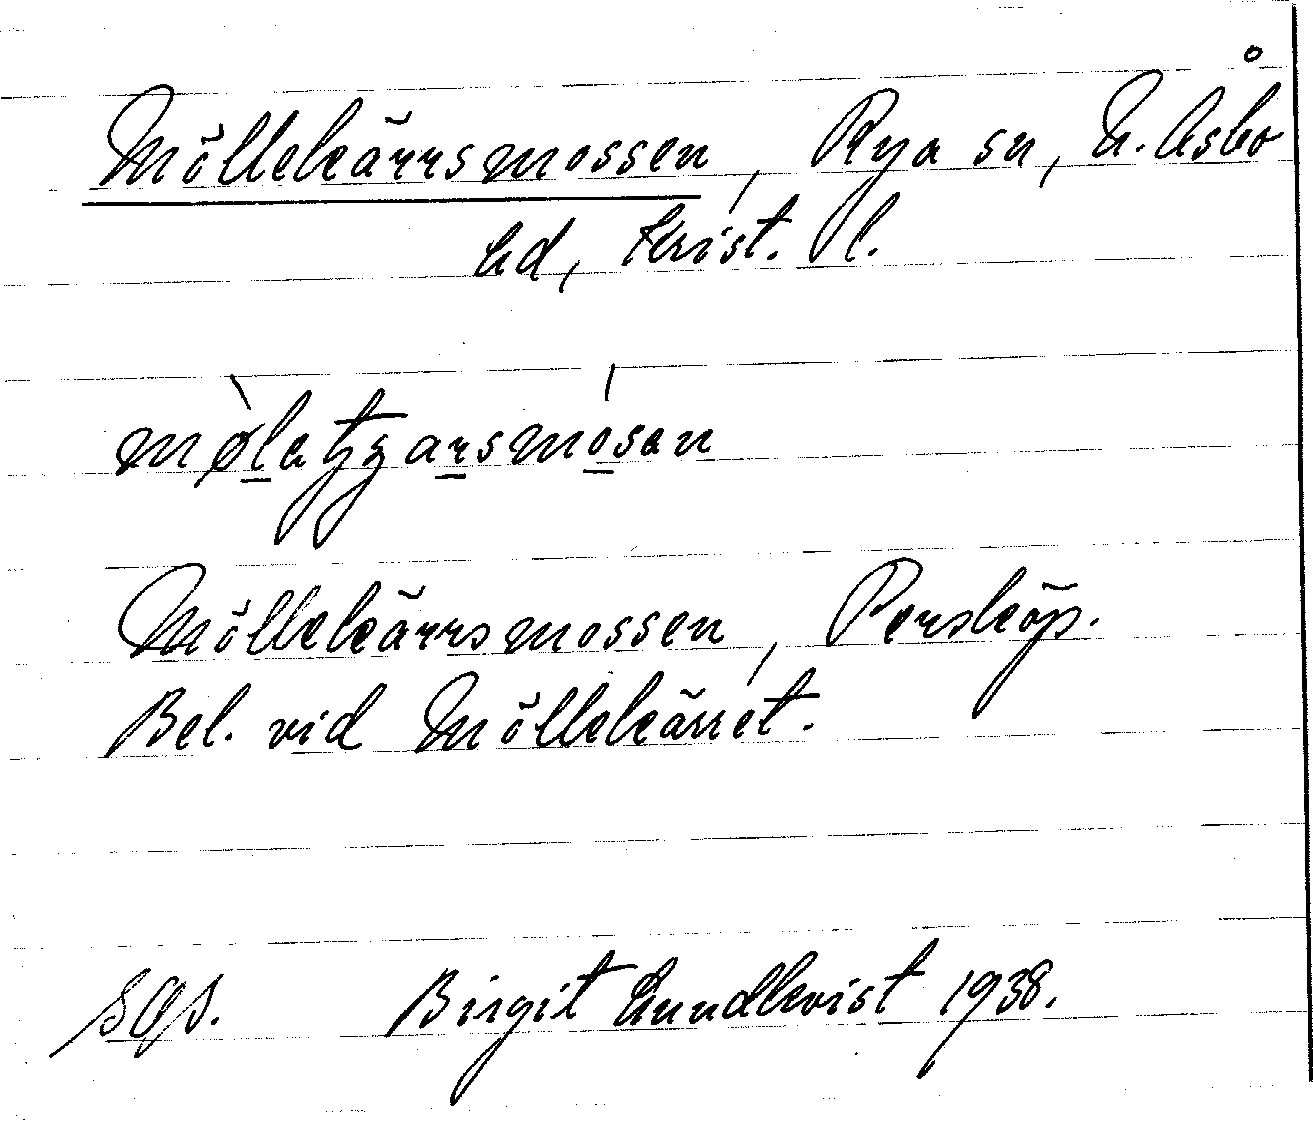 Möllekärrsmossen, Rya sn, N. Åsbo
hd, Krist. l.
Möllekärrsmossen, Persköp.
Bel. vid Möllekärret.
SOS. Birgit Lundkvist 1938.